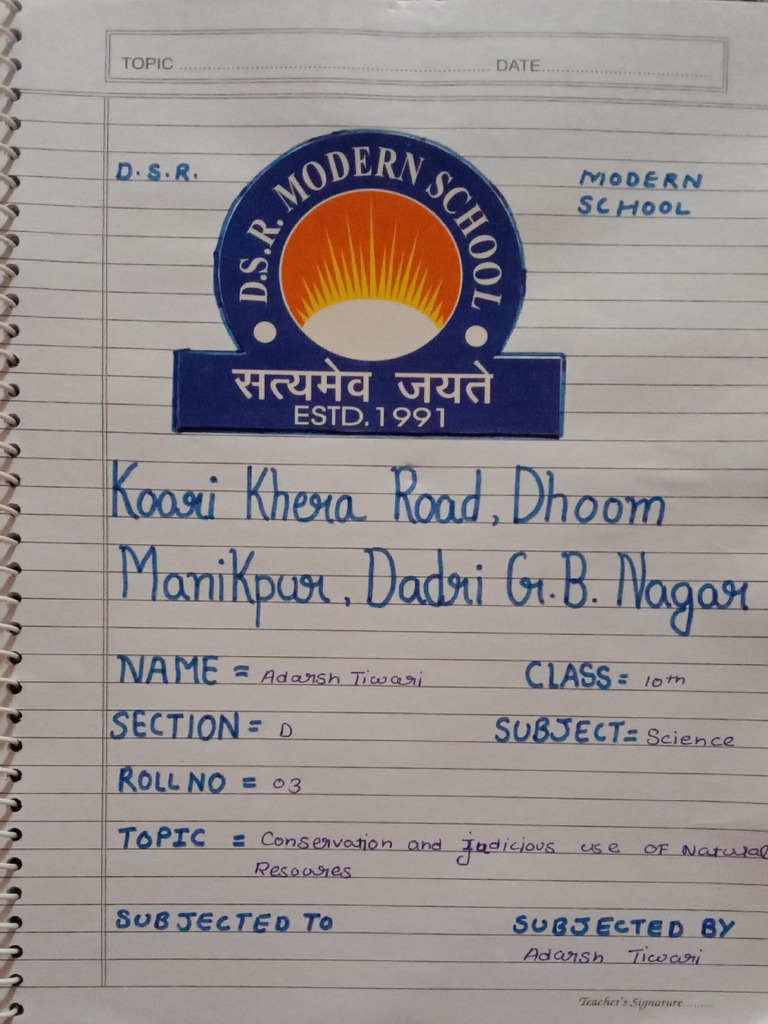 TOPIC ........ DATE........
D.S.R. MODERN
SCHOOL
D.S.R. MODERN SCHOOL
सत्यमेव जयते
ESTD.1991
Koari Khera Road, Dhoom
Manikpur, Dadri G.B. Nagar
NAME = Adarsh Tiwari CLASS = 10th
SECTION = D SUBJECT = Science
ROLL NO = 03
TOPIC = Conservation and judicious use of Natural
Resoures
SUBJECTED TO SUBJECTED BY
Adarsh Tiwari
Teacher's Signature........